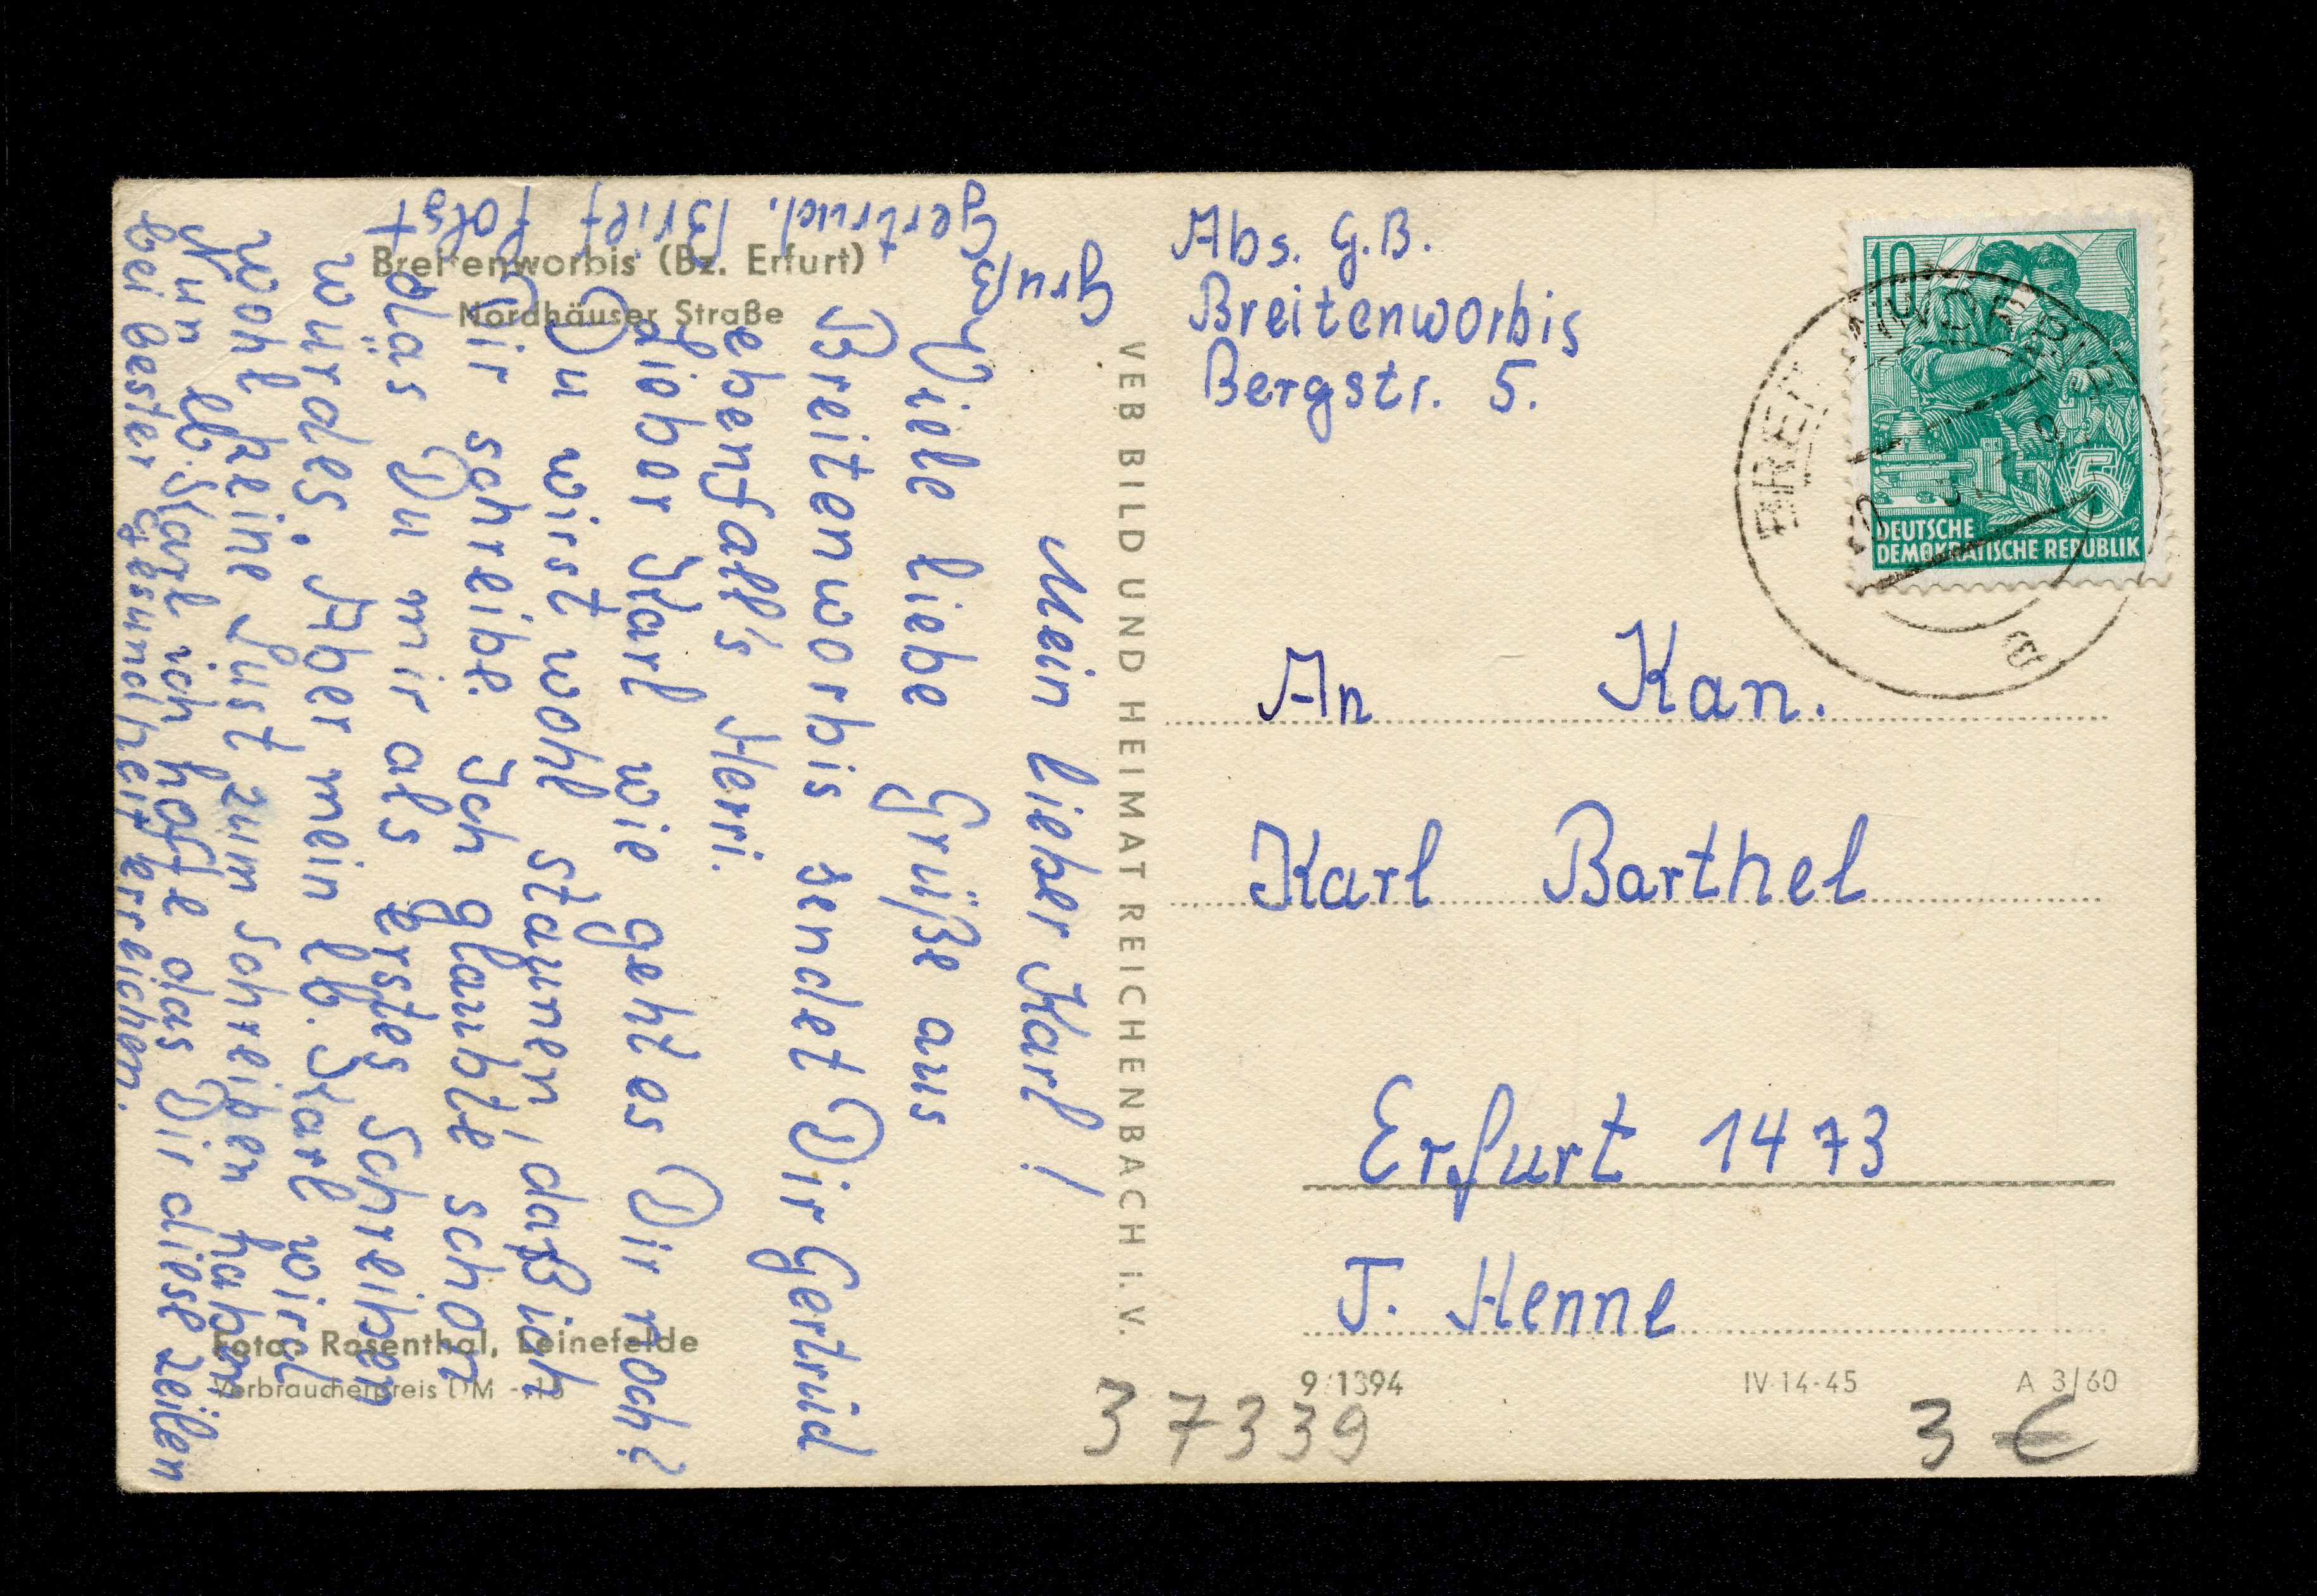 Breitenworbis (Bz. Erfurt)
Nordhäuser Straße
Mein lieber Karl!
Viele liebe Grüße aus
Breitenworbis sendet Dir Gertrud
ebenfall's Herri.
Lieber Karl wie geht es Dir noch?
Du wirst wohl staunen, daß ich
Dir schreibe. Ich glaubte schon
das Du mir als erstes Schreiben
würdes. Aber mein lb. Karl wird
wohl keine Lust zum schreiben haben.
Nun lb. Karl ich hoffe das Dir diese Zeilen
bei bester Gesundheit erreichen.
Gruß
Gertrud. Brief folgt
Foto: Rosenthal, Leinefelde
Verbraucherpreis DM
VEB BILD UND HEIMAT REICHENBACH I. V.
Abs. G.B.
Breitenworbis
Bergstr. 5.
10
5
DEUTSCHE
DEMOKRATISCHE REPUBLIK
An Kan.
Karl Barthel
Erfurt 1473
J. Henne
9/1394 IV-14-45 A 3/60
37339 3 €